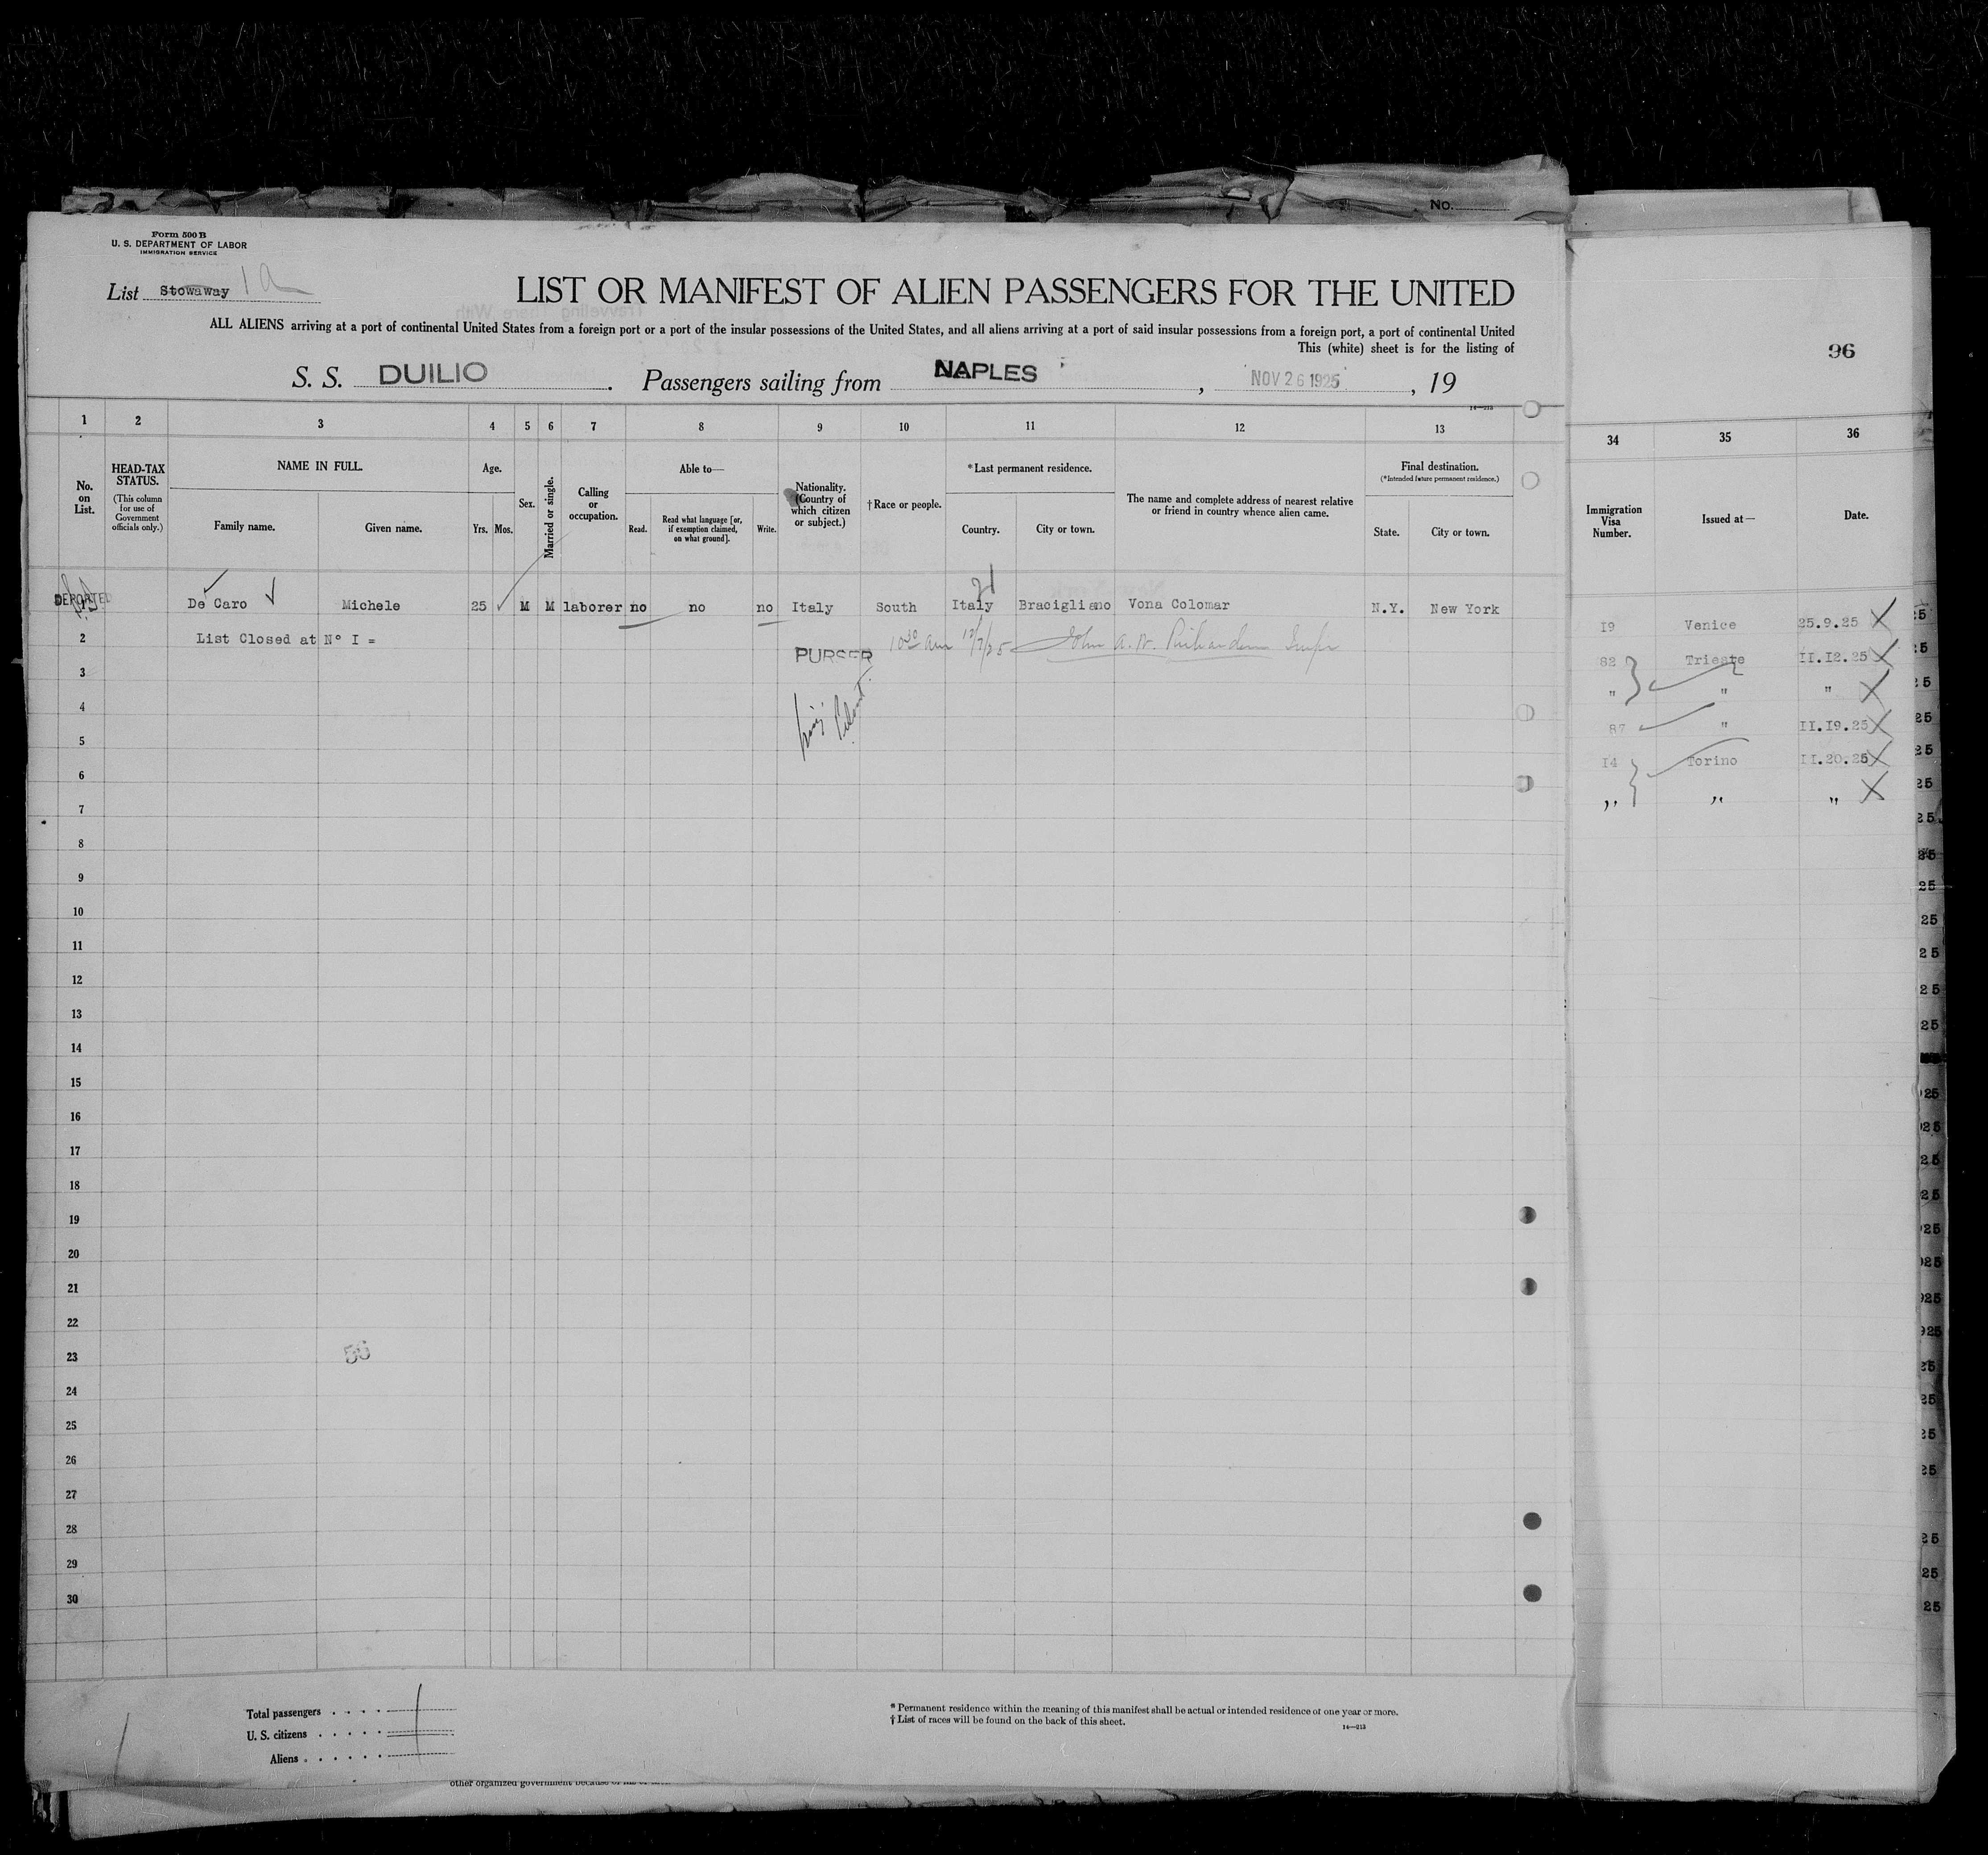 No.
Form 500 B
U. S. DEPARTMENT OF LABOR
IMMIGRATION SERVICE
List Stowaway 1a
LIST OR MANIFEST OF ALIEN PASSENGERS FOR THE UNITED
ALL ALIENS arriving at a port of continental United States from a foreign port or a port of the insular possessions of the United States, and all aliens arriving at a port of said insular possessions from a foreign port, a port of continental United
This (white) sheet is for the listing of
S. S. DUILIO. Passengers sailing from NAPLES, NOV 26 1925, 19
14—213
96
1 2 3 4 5 6 7 8 9 10 11 12 13
34 35 36
No. on List.
HEAD-TAX STATUS.
(This column for use of Government officials only.)
NAME IN FULL.
Family name. Given name.
Age.
Yrs. Mos.
Sex.
Married or single.
Calling or occupation.
Able to—
Read. Read what language [or, if exemption claimed, on what ground]. Write.
Nationality. (Country of which citizen or subject.)
†Race or people.
*Last permanent residence.
Country. City or town.
The name and complete address of nearest relative or friend in country whence alien came.
Final destination.
(*Intended future permanent residence.)
State. City or town.
Immigration Visa Number.
Issued at—
Date.
DEPORTED De Caro Michele 25 M M laborer no no no Italy South Italy Bracigliano Vona Colomar N.Y. New York
2 List Closed at N° I =
PURSER 10 30 am 12/7/25 John A. W. Richardson Inspr
3
4
5
6
7
8
9
10
11
12
13
14
15
16
17
18
19
20
21
22
23
24
25
26
27
28
29
30
56
19 Venice 25.9.25
82 Trieste II.I2.25
" " "
87 " II.I9.25
I4 Torino II.20.25
,, ,, "
Total passengers
U. S. citizens
Aliens
* Permanent residence within the meaning of this manifest shall be actual or intended residence of one year or more.
† List of races will be found on the back of this sheet.
14—213
other organized government because of